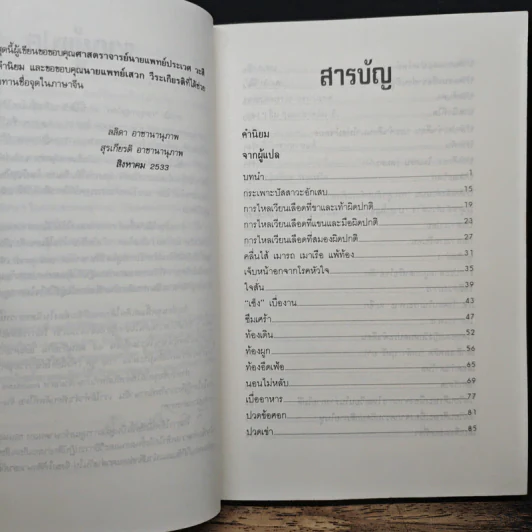 ชุดนี้ผู้เขียนขอขอบคุณศาสตราจารย์นายแพทย์ประเวศ วะสี
คำนิยม และขอขอบคุณนายแพทย์เสวก วีระเกียรติที่ได้ช่วย
ทานชื่อจุดในภาษาจีน
ลลิตา อาชานานุภาพ
สุรเกียรติ อาชานานุภาพ
สิงหาคม 2533
สารบัญ
คำนิยม
จากผู้แปล
บทนำ 1
กระเพาะปัสสาวะอักเสบ 15
การไหลเวียนเลือดที่ขาและเท้าผิดปกติ 19
การไหลเวียนเลือดที่แขนและมือผิดปกติ 23
การไหลเวียนเลือดที่สมองผิดปกติ 27
คลื่นไส้ เมารถ เมาเรือ แพ้ท้อง 31
เจ็บหน้าอกจากโรคหัวใจ 35
ใจสั่น 39
"เซ็ง" เบื่องาน 43
ซึมเศร้า 47
ท้องเดิน 52
ท้องผูก 56
ท้องอืดเฟ้อ 65
นอนไม่หลับ 69
เบื่ออาหาร 77
ปวดข้อศอก 81
ปวดเข่า 85